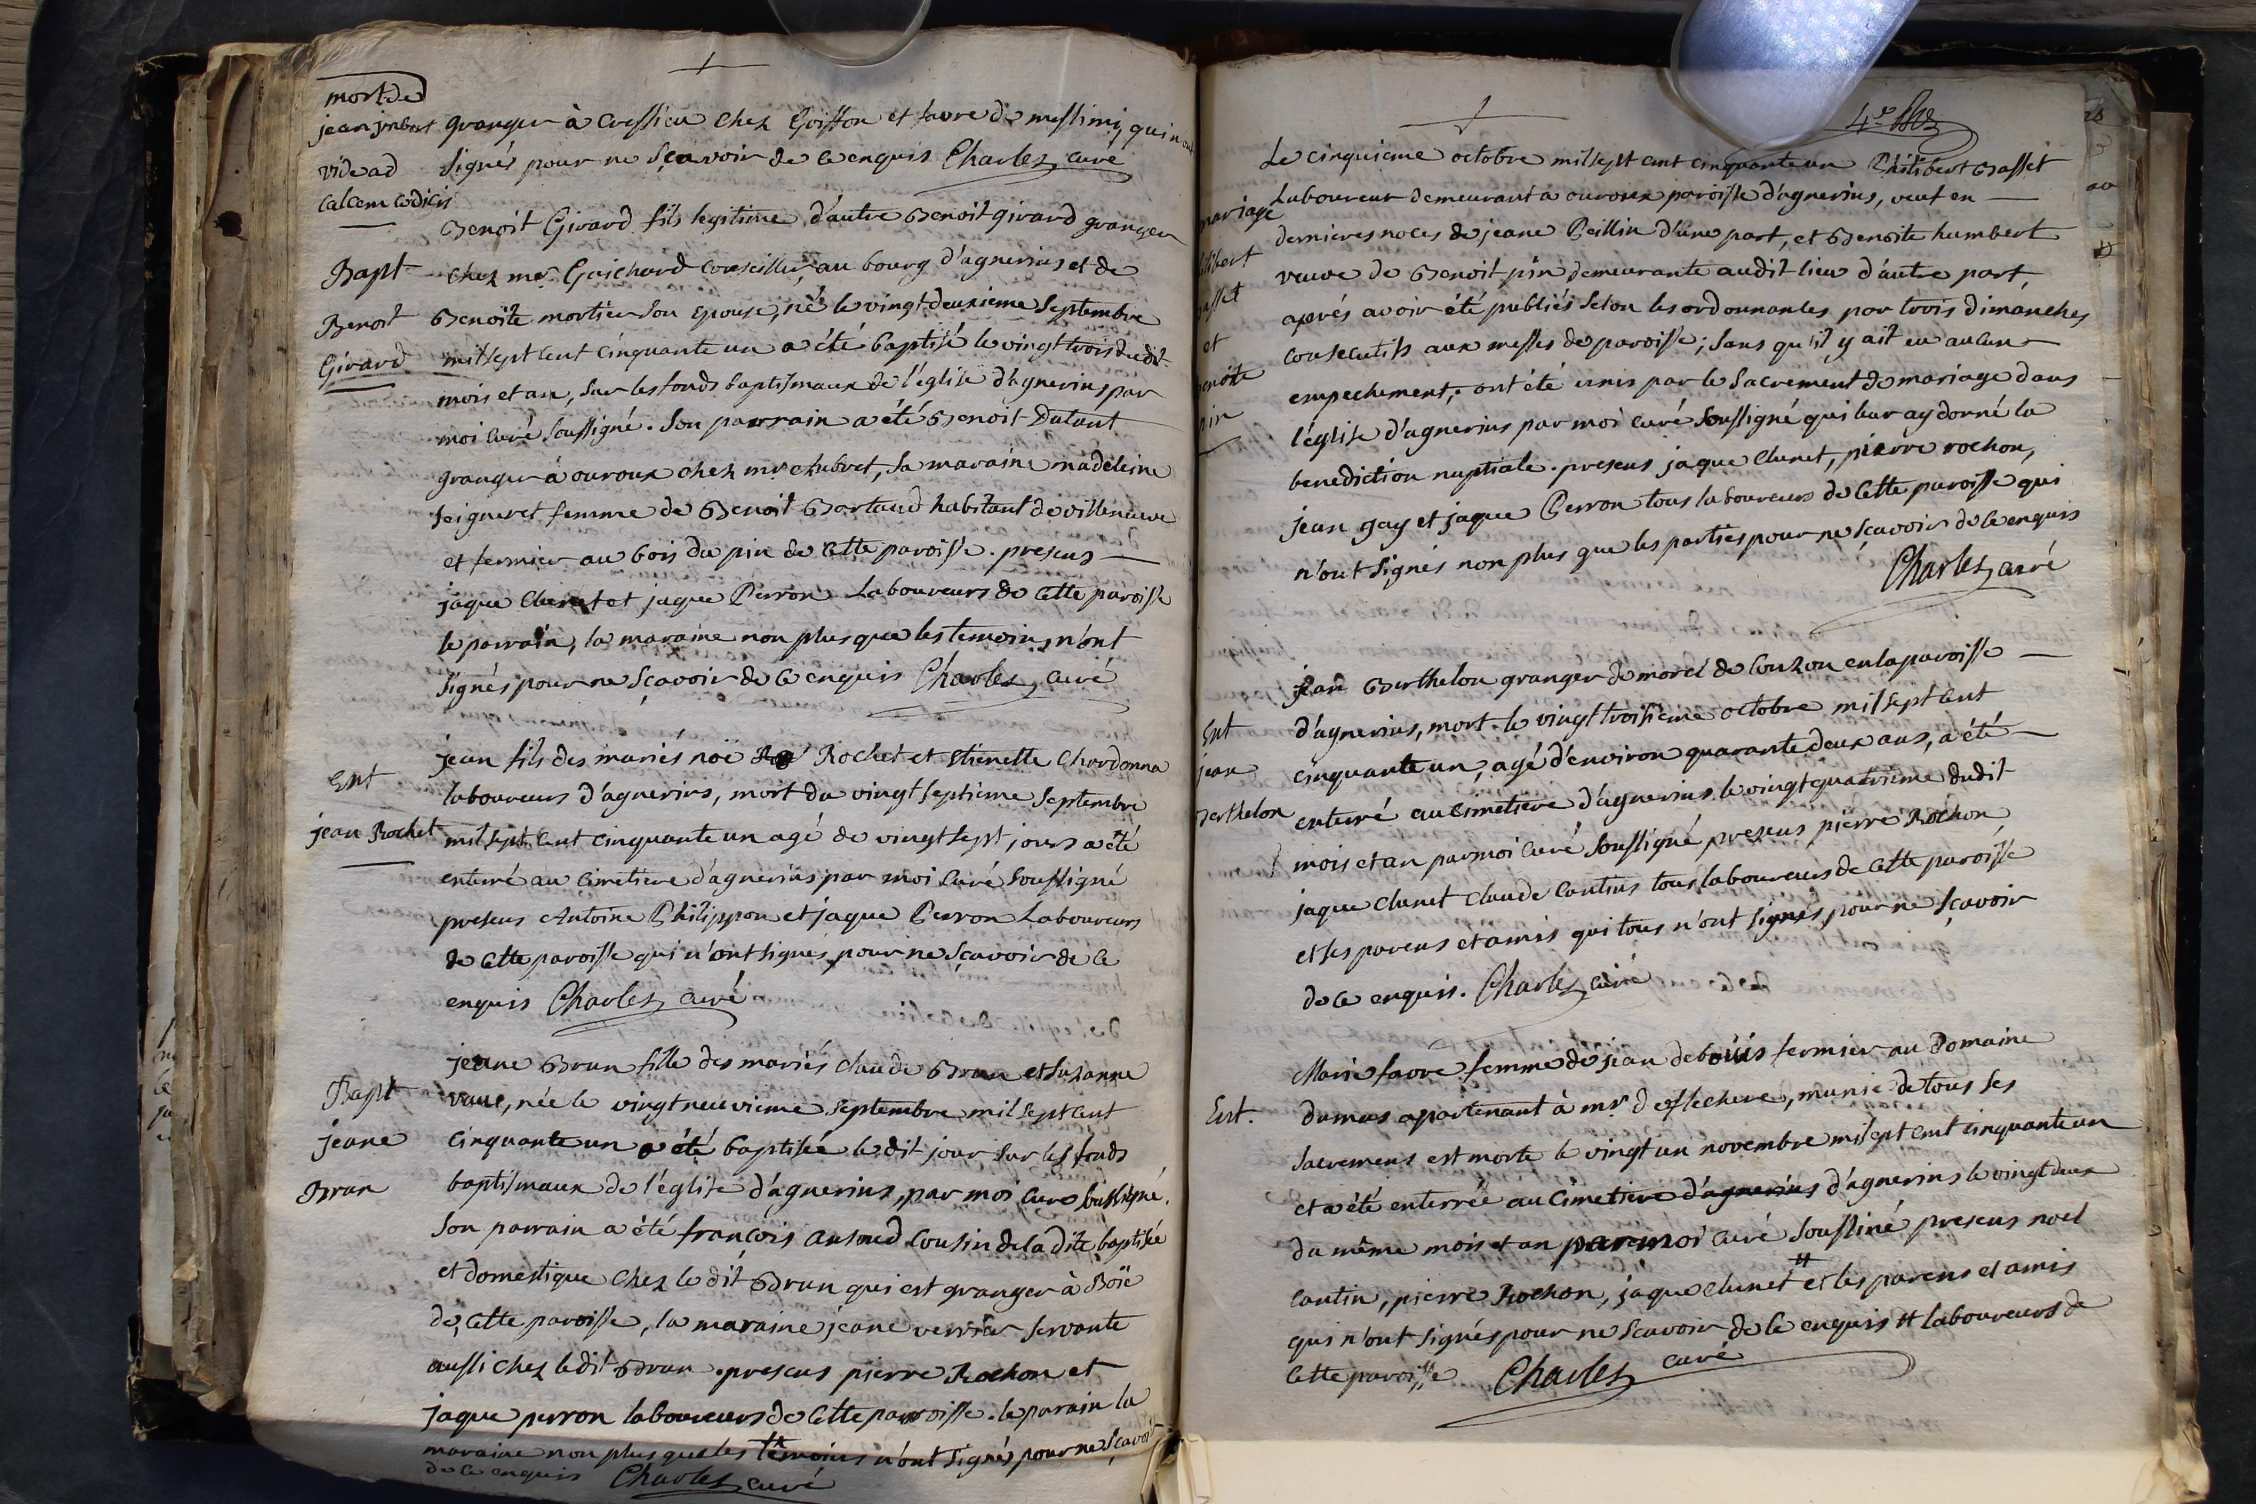 mort de
jean jnbert
vide ad
calcem codicis
granger à Cressieu chez Goiffon et favre de messimi, qui n'ont
signés pour ne sçavoir de ce enquis Charles, curé
Bapt
Benoit
Girard
Benoit Girard fils legitime d'autre Benoit girard granger
chez mr. Guichard conseiller, au bourg d'agnerins et de
Benoite mortier son epouse, né le vingt deuxieme Septembre
mil sept cent cinquante un a été baptisé le vingt trois du dit
mois et an, sur les fonds baptismaux de l'église d'agnerins par
moi curé soussigné. Son parrain a été Benoit Dutant
granger à ouroux chez mr. chubret, sa maraine madeleine
seigneret femme de Benoit Bortaud habitant de villeneuve
et fermier au bois du pin de cette paroisse. presens
jaque Clunet et jaque Perron Laboureurs de cette paroisse
le parrain, la maraine non plus que les temoins n'ont
signés pour ne sçavoir de ce enquis Charles, curé
Ent
jean Rochet
jean fils des mariés noë Rochet et Etienette Chardonna
laboureurs d'agnerins, mort du vingt septieme Septembre
mil sept cent cinquante un agé de vingt sept jours a été
enterré au cimetiere d'agnerins par moi curé soussigné
presens Antoine Philippon et jaque Perron Laboureurs
de cette paroisse qui n'ont signés pour ne sçavoir de ce
enquis Charles, curé
Bapt
jeane
Brun
jeane Brun fille des mariés Claude Brun et Suzanne
vaue, née le vingt neuvieme septembre mil sept cent
cinquante un a été baptisée le dit jour sur les fonds
baptismaux de l'église d'agnerins, par moi curé soussigné.
Son parrain a été françois cousin de la dite baptisée
et domestique chez le dit Brun qui est granger à Boïe
de cette paroisse, la maraine jeane verrier servante
aussi chez le dit Brun. presens pierre Rochon et
jaque perron laboureurs de cette paroisse. le parain la
maraine non plus que les témoins n'ont signés pour ne sçavoir
de ce enquis Charles, curé
4e
mariage
et
Benoite
pin
Le cinquieme octobre mil sept cent cinquante un Philibert Basset
Laboureur demeurant à ouroux paroisse d'agnerins, veuf en
dernieres noces de jeane Peillin d'une part, et Benoite humbert
veuve de Benoit pin demeurante audit lieu d'autre part,
aprés avoir été publiés selon les ordonnances par trois dimanches
consecutifs aux messes de paroisse; sans qu'il y ait eu aucun
empechement, ont été unis par le Sacrement de mariage dans
l'église d'agnerins par moi curé soussigné qui leur ay donné la
benediction nuptiale. presens jaque Clunet, pierre rochon,
jean gay et jaque Perron tous laboureurs de cette paroisse qui
n'ont signés non plus que les parties pour ne sçavoir de ce enquis
Charles, curé
Ent
jean
Berthelon
jean Berthelon granger de morel de Couzon en la paroisse
d'agnerins, mort le vingt troisieme octobre mil sept cent
cinquante un, agé d'environ quarante deux ans, a été
enterré au cimetiere d'agnerins le vingt quatrieme dudit
mois et an par moi curé soussigné presens pierre Rochon
jaque Clunet Claude Contins tous laboureurs de cette paroisse
et les parens et amis qui tous n'ont signés pour ne sçavoir
de ce enquis. Charles, curé
Ent.
Marie favre femme de jean debouis fermier au Domaine
dumas apartenant à mr deflechere, munie de tous ses
sacremens est morte le vingt un novembre mil sept cent cinquante un
et a été enterrée au cimetiere d'agnerins d'agnerins le vingt deux
du même mois et an par moi curé soussiné presens noel
contin, pierre Rochon, jaque Clunet # et les parens et amis
qui n'ont signés pour ne scavoir de ce enquis # laboureurs de
cette paroisse Charles, curé